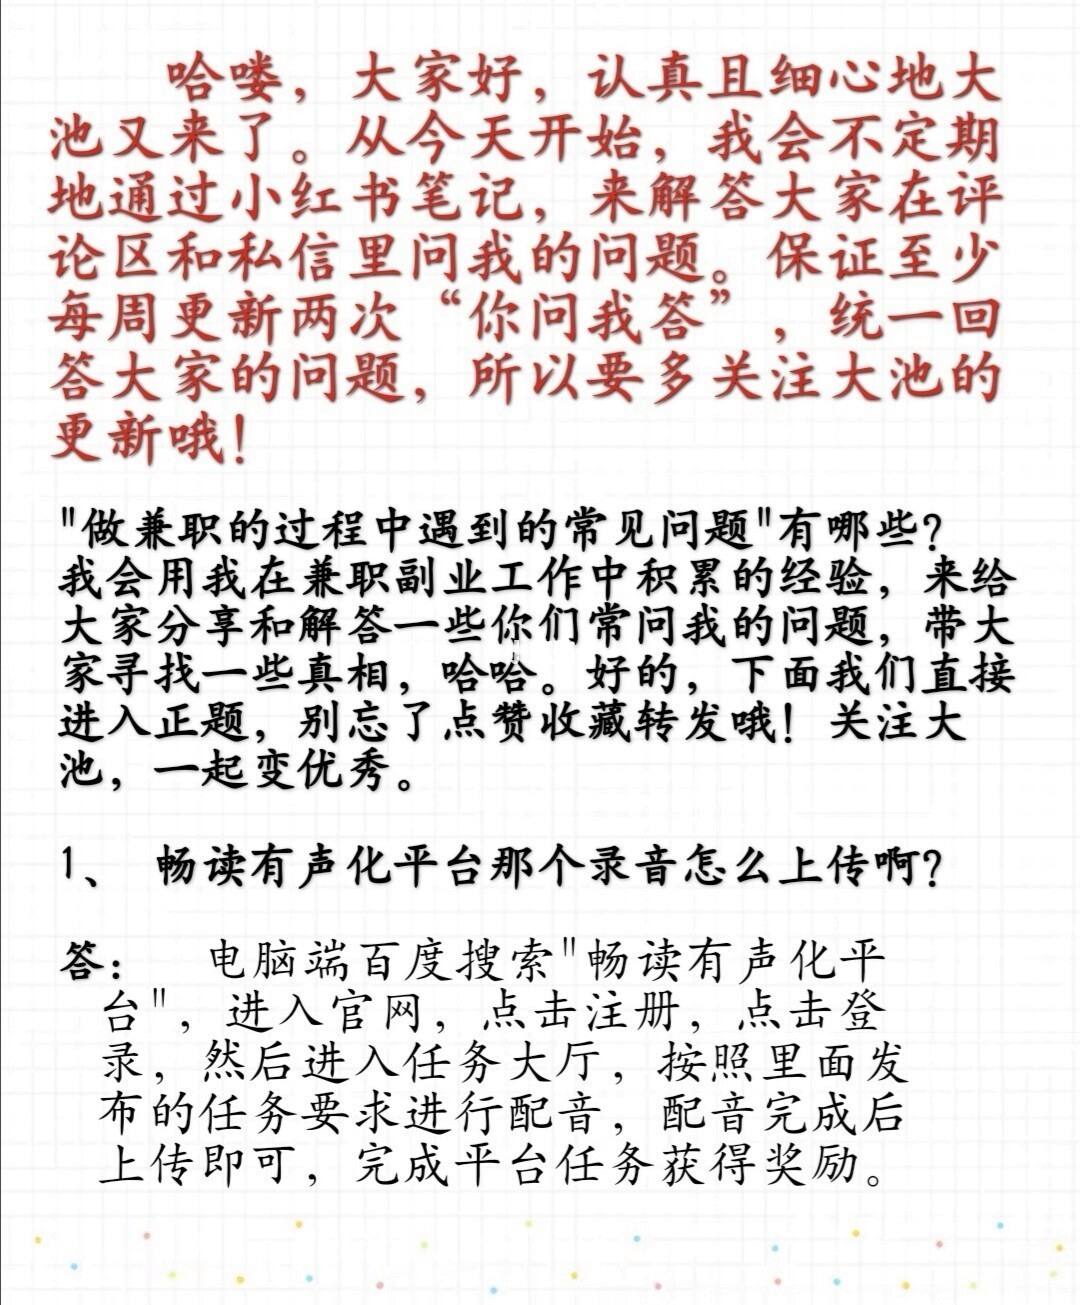 哈喽，大家好，认真且细心地大
池又来了。从今天开始，我会不定期
地通过小红书笔记，来解答大家在评
论区和私信里问我的问题。保证至少
每周更新两次“你问我答”，统一回
答大家的问题，所以要多关注大池的
更新哦！
"做兼职的过程中遇到的常见问题"有哪些？
我会用我在兼职副业工作中积累的经验，来给
大家分享和解答一些你们常问我的问题，带大
家寻找一些真相，哈哈。好的，下面我们直接
进入正题，别忘了点赞收藏转发哦！关注大
池，一起变优秀。
1、 畅读有声化平台那个录音怎么上传啊？
答： 电脑端百度搜索"畅读有声化平
台"，进入官网，点击注册，点击登
录，然后进入任务大厅，按照里面发
布的任务要求进行配音，配音完成后
上传即可，完成平台任务获得奖励。